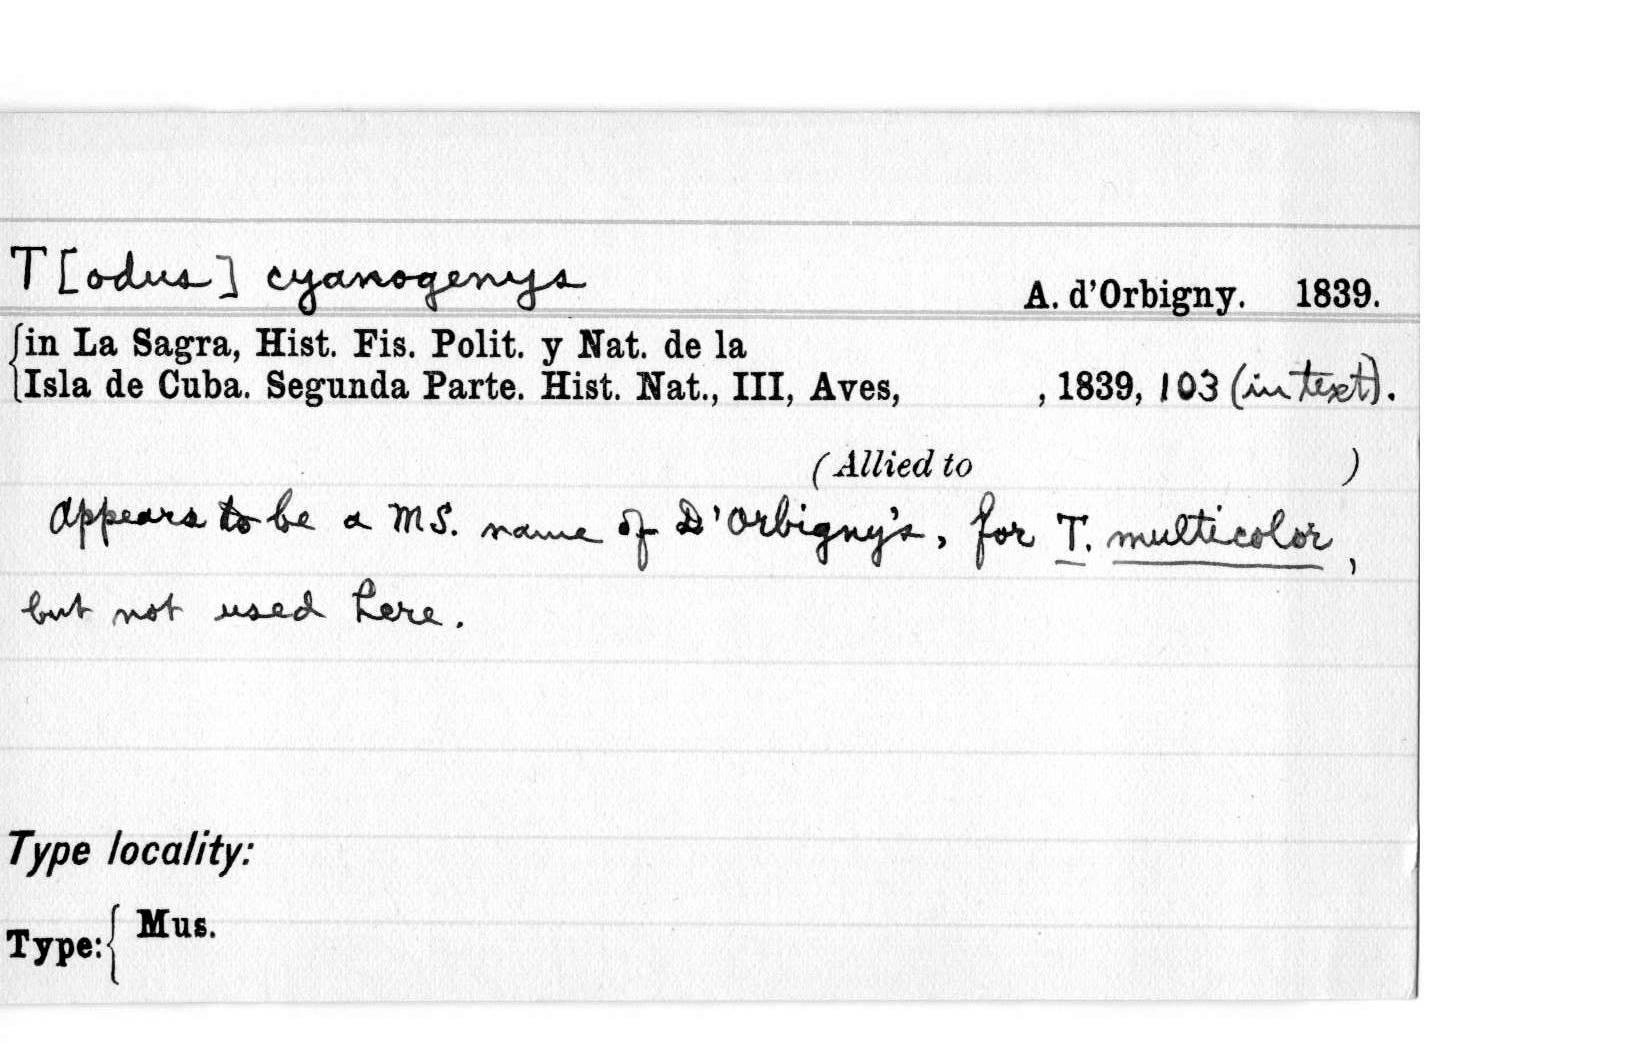 T[odus] cyanogenys A. d'Orbigny. 1839.
in La Sagra, Hist. Fis. Polit. y Nat. de la
Isla de Cuba. Segunda Parte. Hist. Nat., III, Aves, , 1839, 103 (in text).
(Allied to )
Appears to be a MS. name of D'Orbigny's, for T. multicolor,
but not used here.
Type locality:
Type: { Mus.